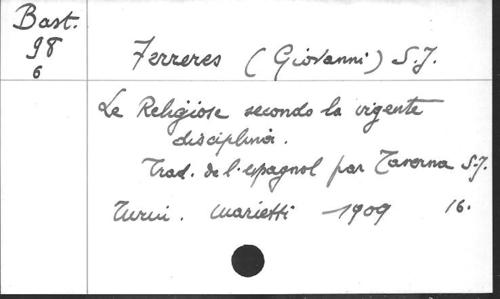 Bast.
98
6
Ferreres (Giovanni) S.J.
Le Religiose secondo la vigente
disciplina.
Trad. de l'espagnol par Taverna S.J.
Turin. Marietti 1909 16.